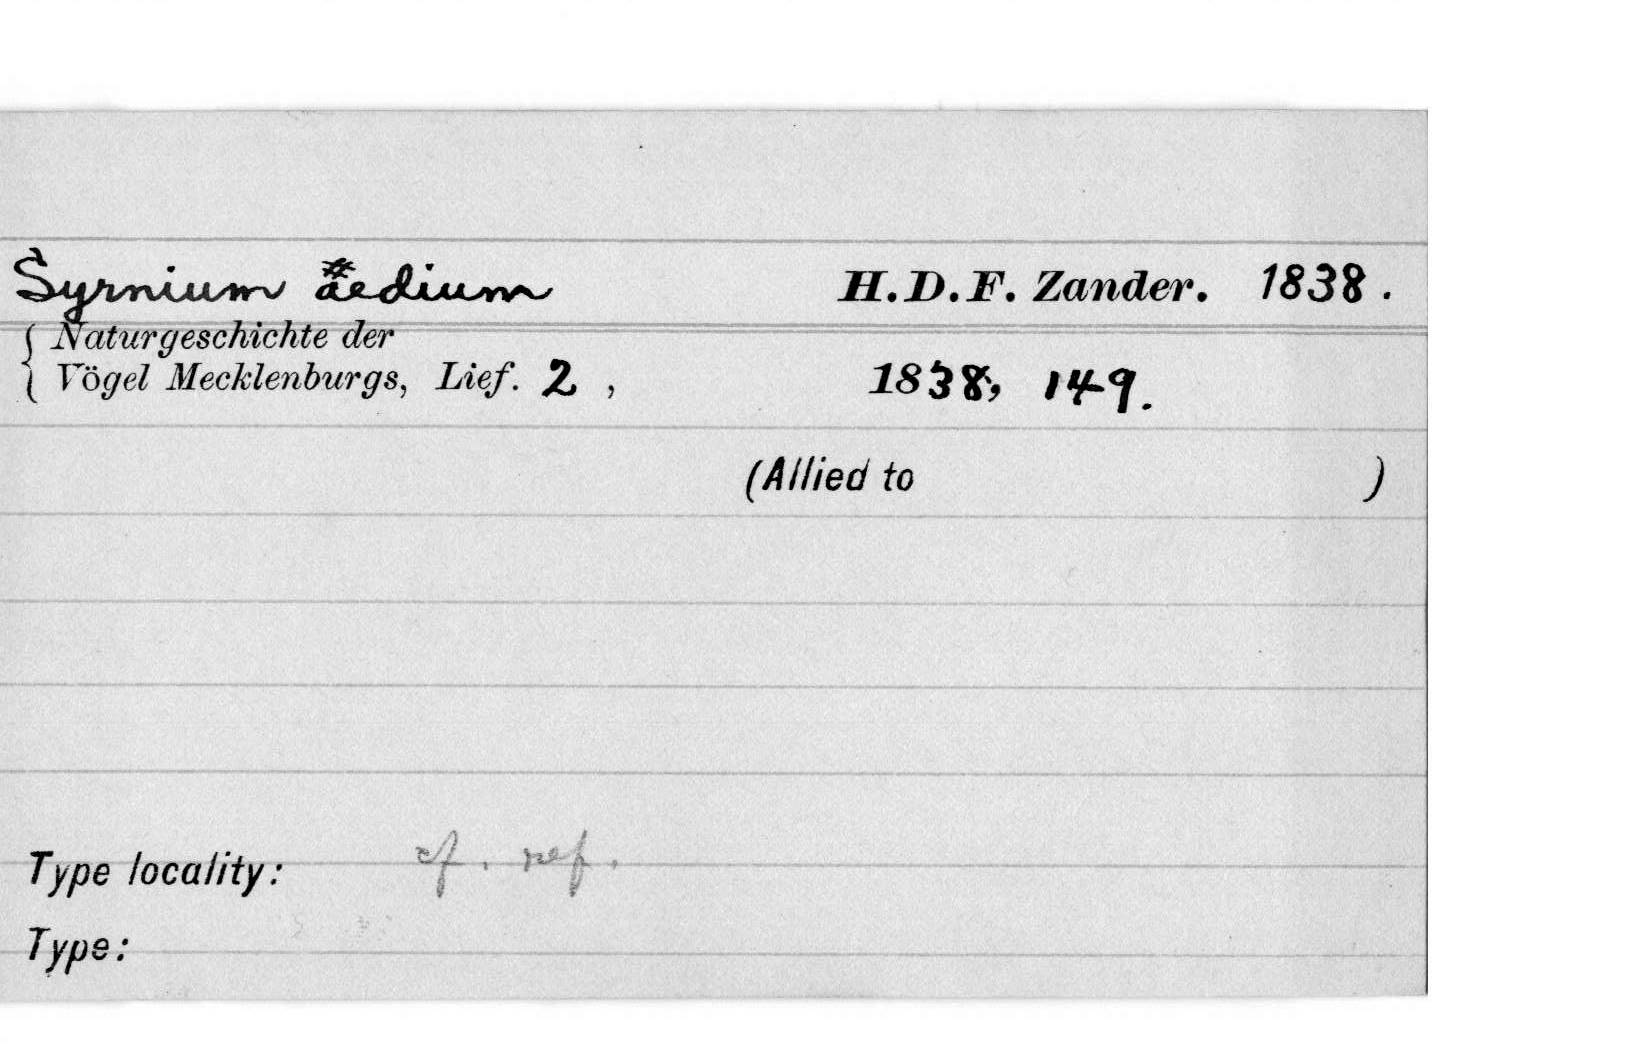 Syrnium aedium H.D.F. Zander. 1838.
Naturgeschichte der
Vögel Mecklenburgs, Lief. 2, 1838, 149.
(Allied to )
Type locality: cf. ref.
Type: